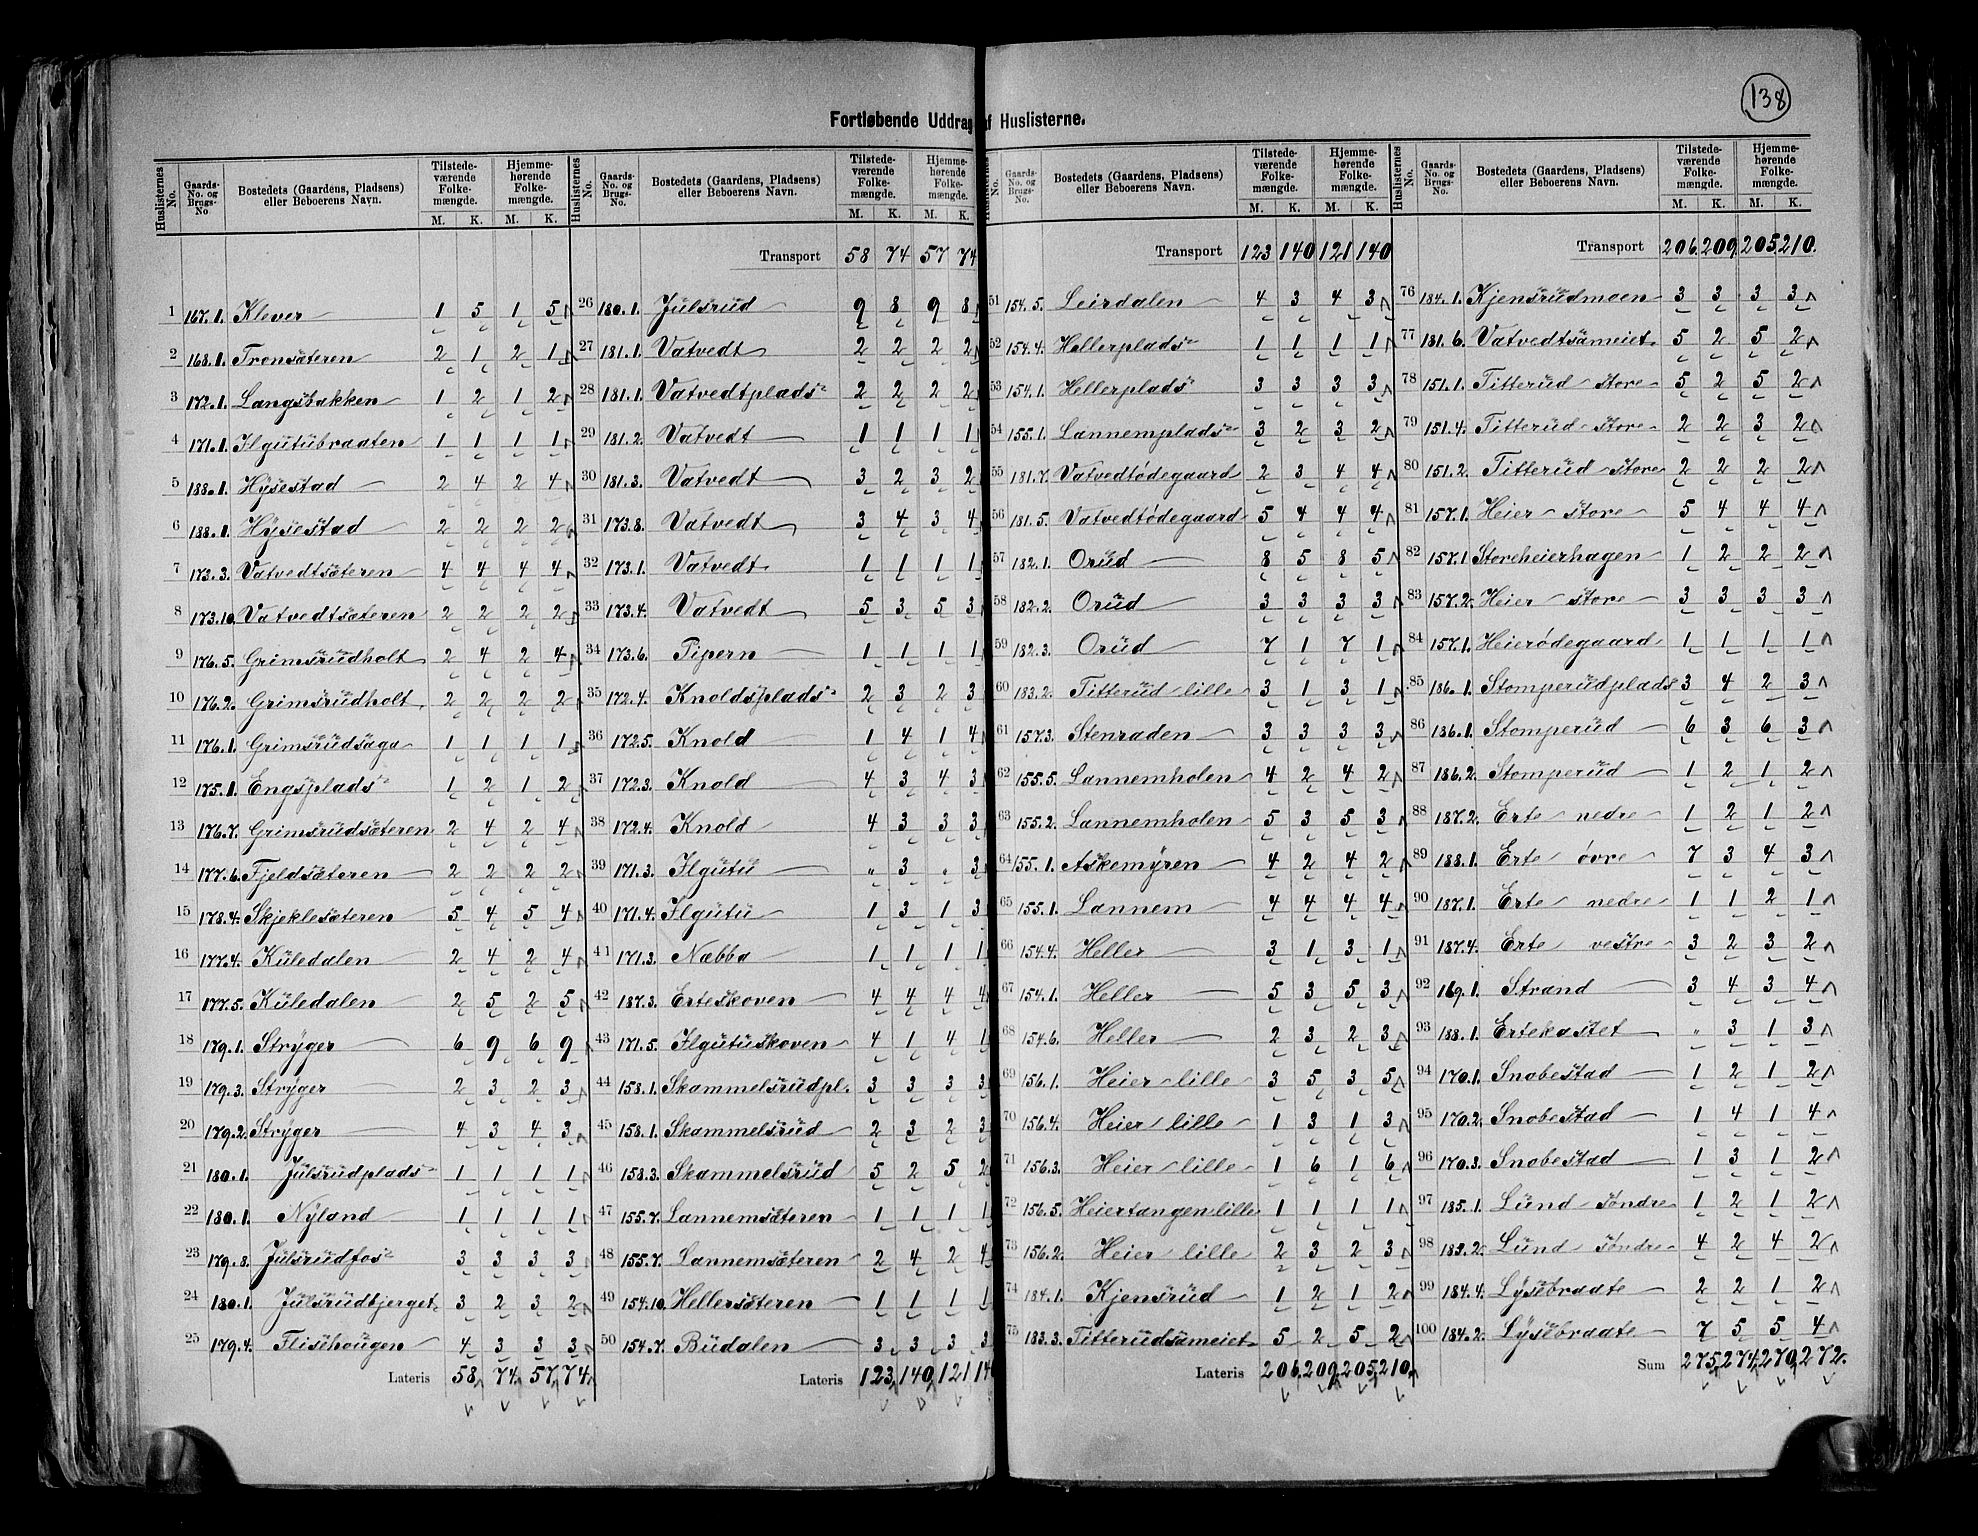 138
Fortløbende Uddrag af Huslisterne.
Huslisternes No. Gaards-No. og Brugs-No Bostedets (Gaardens, Pladsens) eller Beboerens Navn. Tilstedeværende Folkemængde. M. K. Hjemmehørende Folkemængde. M. K.
1 167.1. Klever 1 5 1 5
2 168.1. Tronsæteren 2 1 2 1
3 172.1. Langsbakken 1 2 1 2
4 171.1. Ilgutubraaten 1 1 1 1
5 188.1. Hysestad 2 4 2 4
6 188.1. Hysestad 2 2 2 2
7 173.3. Vatvedtsæteren 4 4 4 4
8 173.10. Vatvedtsæteren 2 2 2 2
9 176.5. Grimsrudholt 2 4 2 4
10 176.2. Grimsrudholt 2 2 2 2
11 176.1. Grimsrudsaga 1 1 1 1
12 175.1. Engsplads 1 2 1 2
13 176.7. Grimsrudsæteren 2 4 2 4
14 177.6. Fjeldsæteren 2 2 2 2
15 178.4. Skjeklesæteren 5 4 5 4
16 177.4. Kuledalen 2 4 2 4
17 177.5. Kuledalen 2 5 2 5
18 179.1. Stryger 6 9 6 9
19 179.3. Stryger 2 3 2 3
20 179.2. Stryger 4 3 4 3
21 180.1. Julsrudplads 1 1 1 1
22 180.1. Nyland 1 1 1 1
23 179.8. Julsrudfos 3 3 3 3
24 180.1. Julsrudbjerget 3 2 3 2
25 179.4. Flisehougen 4 3 3 3
Lateris 58 74 57 74
Huslisternes No. Gaards-No. og Brugs-No. Bostedets (Gaardens, Pladsens) eller Beboerens Navn. Tilstedeværende Folkemængde. M. K. Hjemmehørende Folkemængde. M. K.
Transport 58 74 57 74
26 180.1. Julsrud 9 8 9 8
27 181.1. Vatvedt 2 2 2 2
28 181.1. Vatvedtplads 2 2 2 2
29 181.2. Vatvedt 1 1 1 1
30 181.3. Vatvedt 3 2 3 2
31 173.8. Vatvedt 3 4 3 4
32 173.1. Vatvedt 1 1 1 1
33 173.4. Vatvedt 5 3 5 3
34 173.6. Pipern 1 1 1 1
35 172.4. Knoldsplads 2 3 2 3
36 172.5. Knold 1 4 1 4
37 172.3. Knold 4 3 4 3
38 172.4. Knold 4 3 3 3
39 171.3. Ilgutu " 3 " 3
40 171.4. Ilgutu 1 3 1 3
41 171.3. Nabba 1 1 1 1
42 187.3. Erteskoven 4 4 4 4
43 171.5. Ilgutuskoven 4 1 4 1
44 158.1. Skammelsrudpl. 3 3 3 3
45 158.1. Skammelsrud 2 3 2 3
46 158.3. Skammelsrud 5 2 5 2
47 155.7. Lannemsæteren 1 1 1 1
48 155.7. Lannemsæteren 2 4 2 4
49 154.10. Hellersæteren 1 1 1 1
50 154.7. Budalen 3 3 3 3
Lateris 123 140 121 140
No. Gaards-No. og Brugs-No. Bostedets (Gaardens, Pladsens) eller Beboerens Navn. Tilstedeværende Folkemængde. M. K. Hjemmehørende Folkemængde. M. K.
Transport 123 140 121 140
51 154.5. Leirdalen 4 3 4 3
52 154.4. Hellerplads 1 1 1 1
53 154.1. Hellerplads 3 3 3 3
54 155.1. Lannemplads 3 2 3 2
55 181.7. Vatvedtødegaard 2 3 4 4
56 181.5. Vatvedtødegaard 5 4 4 4
57 182.1. Orud 8 5 8 5
58 182.2. Orud 3 3 3 3
59 182.3. Orud 7 1 7 1
60 183.2. Titterud lille 3 1 3 1
61 157.3. Stenraden 3 3 3 3
62 155.5. Lannemholen 4 2 4 2
63 155.2. Lannemholen 5 3 5 3
64 155.1. Askemyren 4 2 4 2
65 155.1. Lannem 4 4 4 4
66 154.4. Heller 3 1 3 1
67 154.1. Heller 5 3 5 3
68 154.6. Heller 2 3 2 3
69 156.1. Heier lille 3 5 3 5
70 156.4. Heier lille 1 3 1 3
71 156.3. Heier lille 1 6 1 6
72 156.5. Heiertangen lille 1 1 1 1
73 156.2. Heier lille 2 3 2 3
74 184.1. Kjensrud 1 2 1 2
75 183.3. Titterudsameiet 5 2 5 2
Lateris 206 209 205 210
Huslisternes No. Gaards-No. og Brugs-No. Bostedets (Gaardens, Pladsens) eller Beboerens Navn. Tilstedeværende Folkemængde. M. K. Hjemmehørende Folkemængde. M. K.
Transport 206. 209. 205. 210.
76 184.1. Kjensrudmoen 3 3 3 3
77 181.6. Vatvedtsameiet 5 2 5 2
78 151.1. Titterud store 5 2 5 2
79 151.4. Titterud store 2 2 3 2
80 151.2. Titterud store 2 2 2 2
81 157.1. Heier store 5 4 4 4
82 157.1 Storeheierhagen 1 2 2 2
83 157.2. Heier store 3 3 3 3
84 157.1. Heierødegaard 1 1 1 1
85 186.1. Stomperudplads 3 4 2 3
86 186.1. Stomperud 6 3 6 3
87 186.2. Stomperud 1 2 1 2
88 187.2. Erte nedre 1 2 1 2
89 188.1. Erte øvre 7 3 4 3
90 187.1. Erte nedre 1 1 2 1
91 187.4. Erte vestre 3 2 3 2
92 169.1. Strand 3 4 3 4
93 188.1. Ertekastet " 3 1 3
94 170.1. Snobestad 1 2 1 2
95 170.2. Snobestad 1 4 1 4
96 170.3. Snobestad 1 3 1 2
97 185.1. Lund søndre 1 2 1 2
98 183.2. Lund søndre 4 2 4 2
99 184.4. Lysebraate 2 2 1 2
100 184.2. Lysebraate 7 5 5 4
Sum 275. 274. 270. 272.